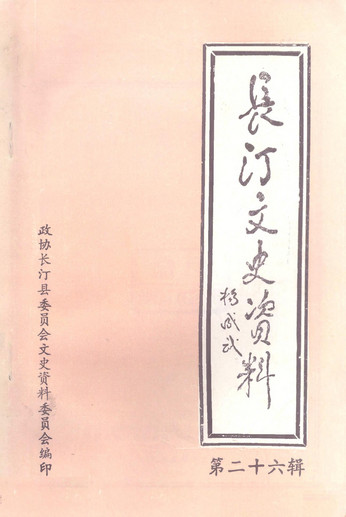 長汀文史资料
杨成武
第二十六辑
政协长汀县委员会文史资料委员会编印